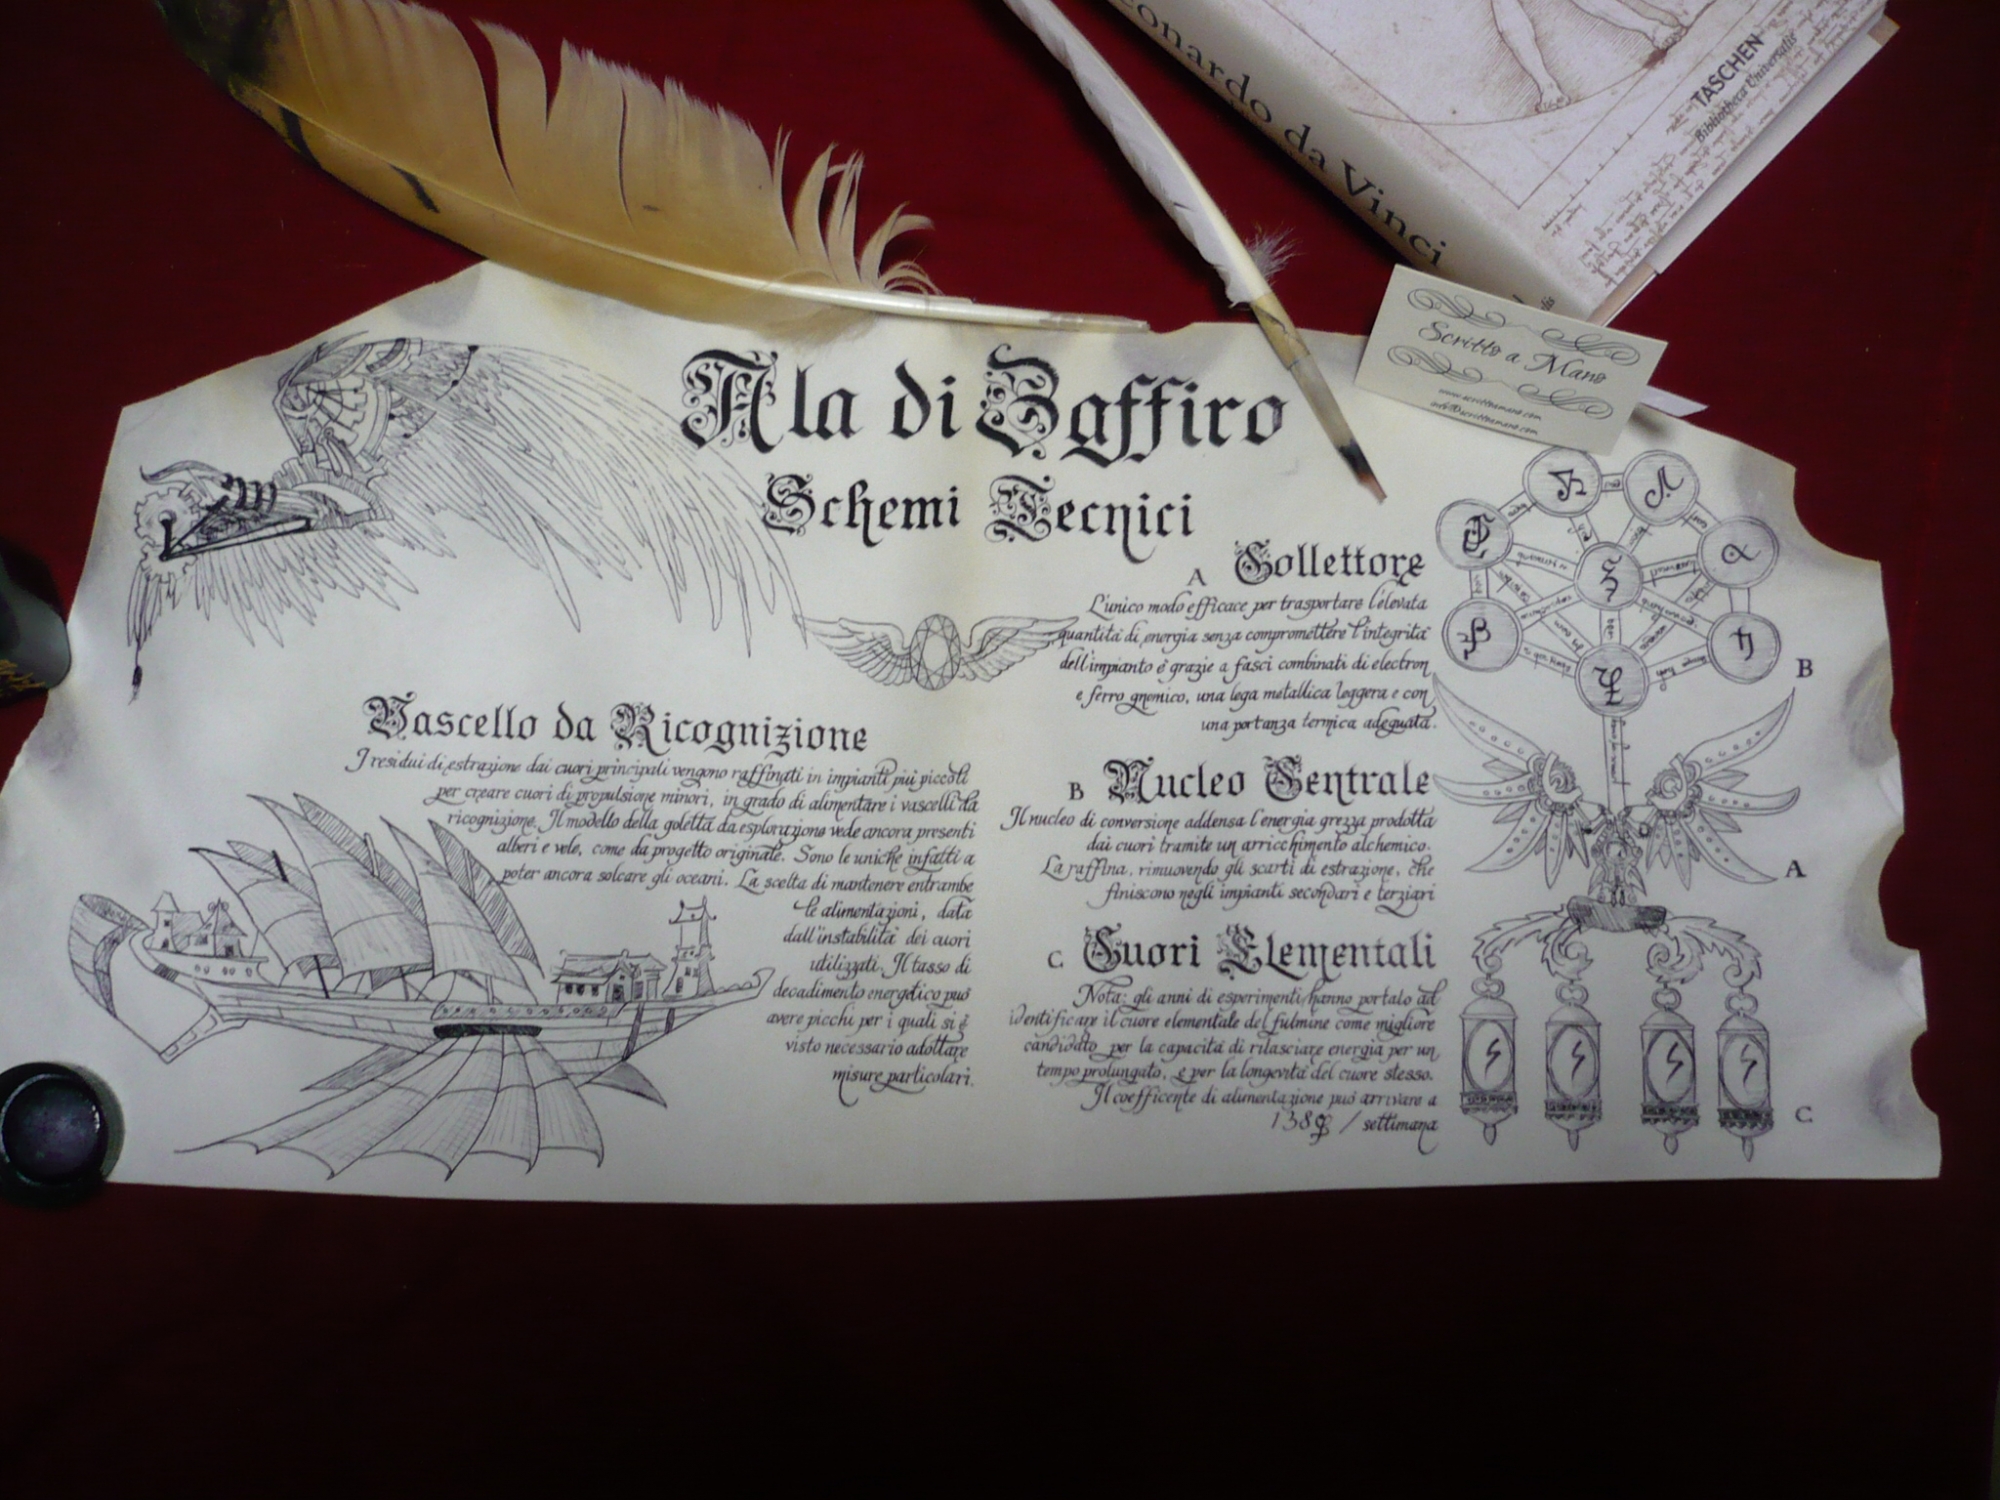 Leonardo da Vinci
TASCHEN
Bibliotheca Universalis
Scritto a Mano
www.scrittoamano.com
info@scrittoamano.com
Ala di Zaffiro
Schemi Tecnici
A Collettore
L'unico modo efficace per trasportare l'elevata
quantità di energia senza compromettere l'integrità
dell'impianto è grazie a fasci combinati di electron
e ferro gnomico, una lega metallica leggera e con
una portanza termica adeguata.
B Nucleo Centrale
Il nucleo di conversione addensa l'energia grezza prodotta
dai cuori tramite un arricchimento alchemico.
La raffina, rimuovendo gli scarti di estrazione, che
finiscono negli impianti secondari e terziari
C Cuori Elementali
Nota: gli anni di esperimenti hanno portato ad
identificare il cuore elementale del fulmine come migliore
candidato per la capacità di rilasciare energia per un
tempo prolungato, e per la longevità del cuore stesso.
Il coefficente di alimentazione può arrivare a
138 / settimana
Vascello da Ricognizione
I residui di estrazione dai cuori principali vengono raffinati in impianti più piccoli
per creare cuori di propulsione minori, in grado di alimentare i vascelli da
ricognizione. Il modello della goletta da esplorazione vede ancora presenti
alberi e vele, come da progetto originale. Sono le uniche infatti a
poter ancora solcare gli oceani. La scelta di mantenere entrambe
le alimentazioni, data
dall'instabilità dei cuori
utilizzati. Il tasso di
decadimento energetico può
avere picchi per i quali si è
visto necessario adottare
misure particolari.
B
A
C